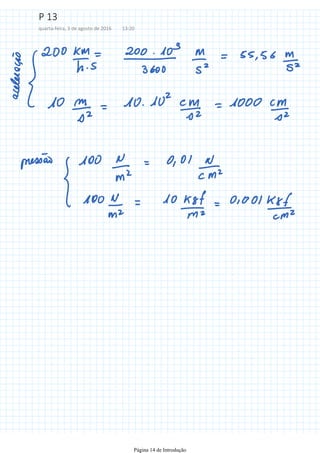 P 13
quarta-feira, 3 de agosto de 2016 13:20
aceleração { 200 KM/h.s = 200 . 10³/3600 M/S² = 55,56 M/S²
10 m/s² = 10. 10² cm/s² = 1000 cm/s²
pressão { 100 N/m² = 0,01 N/cm²
100 N/m² = 10 Kgf/m² = 0,001 Kgf/cm²
Página 14 de Introdução